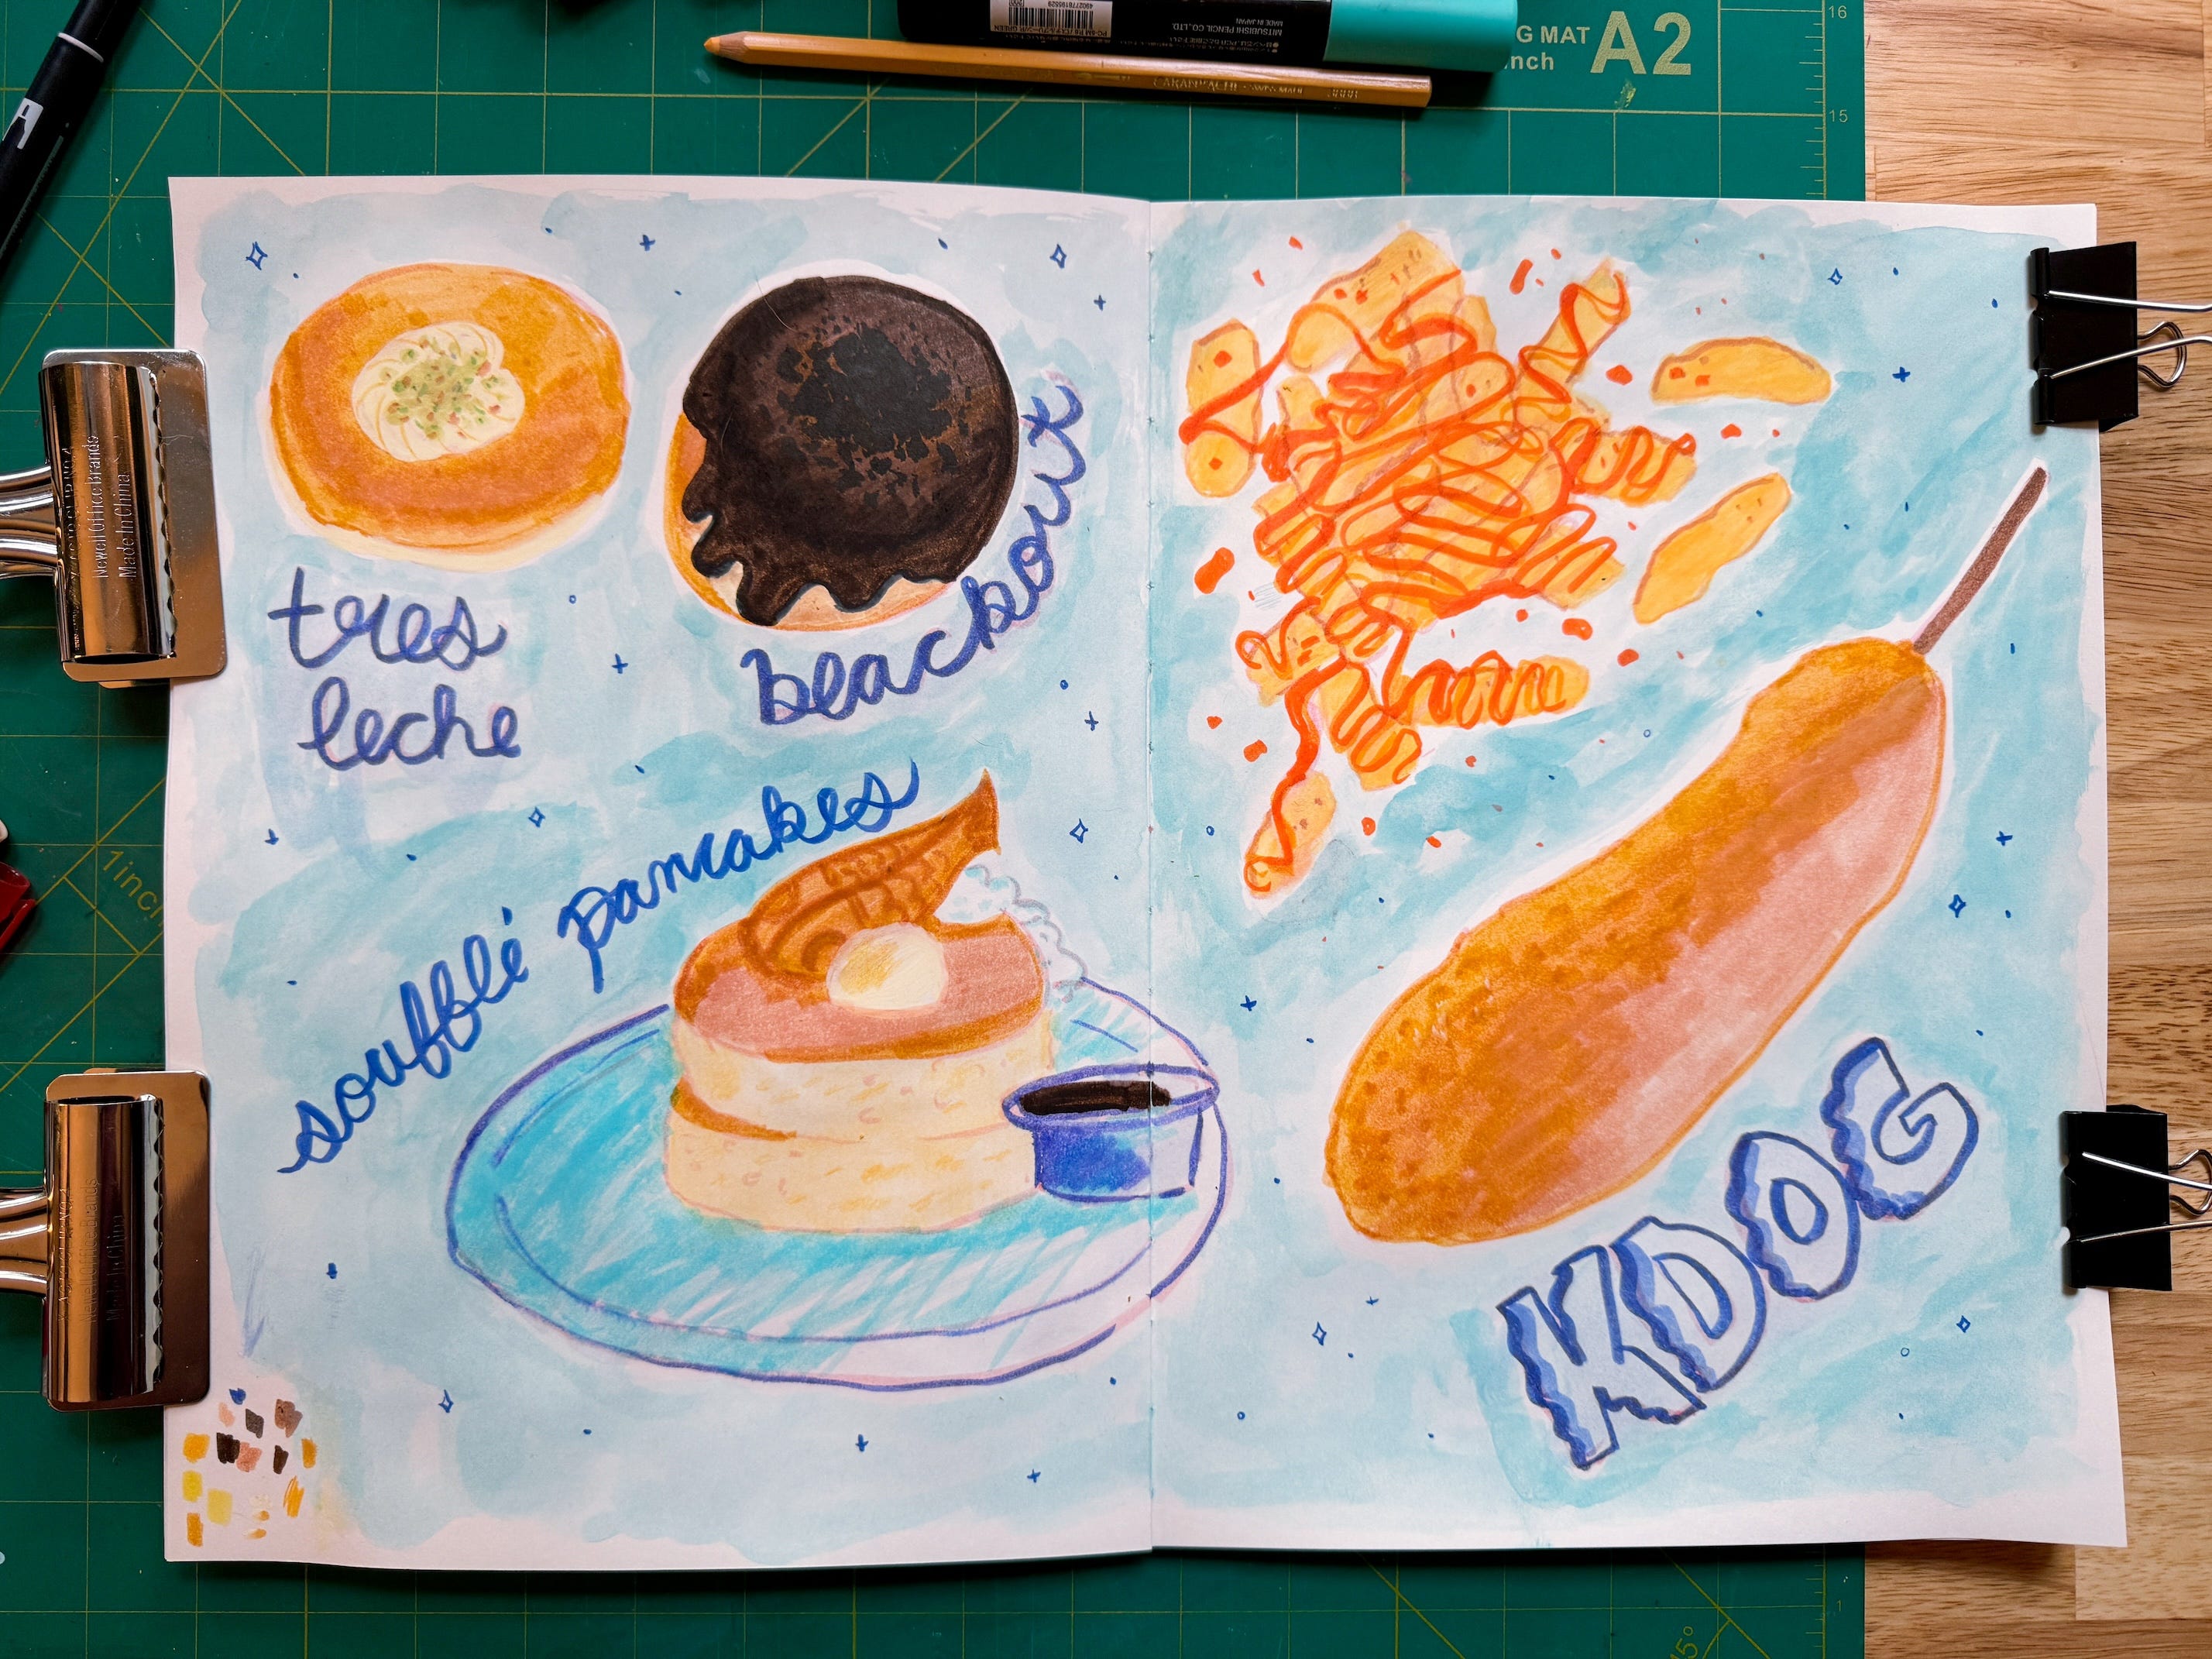 G MAT A2
inch
16
15
MITSUBISHI PENCIL CO., LTD.
MADE IN JAPAN
tres
leche
blackout
soufflé pancakes
KDOG
Newell Office Brands
Made In China
1inch
1